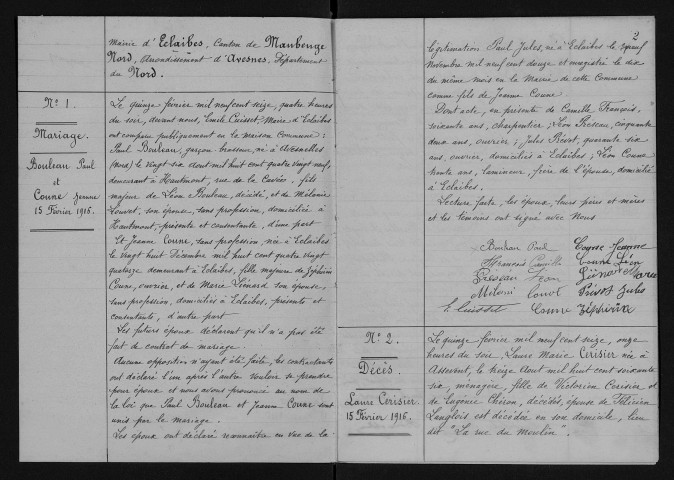 Mairie d'Eclaibes, Canton de Maubeuge
Nord, Arrondissement d'Avesnes, Département
du Nord.
N° 1.
Mariage.
Bouleau Paul
et
Coune Jeanne
15 Février 1916.
Le quinze février mil neuf cent seize, quatre heures
du soir, devant nous, Emile Cuisset, Maire d'Eclaibes
ont comparu publiquement en la maison commune :
Paul Bouleau, garçon brasseur, né à Avesnelles
(Nord) le vingt six août mil huit cent quatre vingt neuf,
demeurant à Hautmont, rue de la fils
majeur de Léon Bouleau, décédé, et de Mélanie
Louvet, son épouse, sans profession, domiciliée à
Hautmont, présente et consentante, d'une part
Et Jeanne Coune, sans profession, née à Eclaibes
le vingt huit Décembre mil huit cent quatre vingt
quatorze demeurant à Eclaibes, fille majeure de Zéphirin
Coune, ouvrier, et de Marie Liénard son épouse,
sans profession, domiciliés à Eclaibes, présents et
consentants, d'autre part.
Les futurs époux déclarent qu'il n'a pas été
fait de contrat de mariage.
Aucune opposition n'ayant été faite, les contractants
ont déclaré l'un après l'autre vouloir se prendre
pour époux et nous avons prononcé au nom de
la loi que Paul Bouleau et Jeanne Coune sont
unis par le mariage.
Les époux ont déclaré reconnaître en vue de la
2
légitimation Paul Jules, né à Eclaibes le neuf
Novembre mil neuf cent douze et enregistré le dix
du même mois en la Mairie de cette Commune
comme fils de Jeanne Coune.
Dont acte, en présence de Camille François,
soixante ans, charpentier ; Léon Preseau, cinquante
deux ans, ouvrier ; Jules Prévot, quarante six
ans, ouvrier, domiciliés à Eclaibes ; Léon Coune
trente ans, lamineur, frère de l'épouse, domicilié
à Eclaibes.
Lecture faite, les époux, leurs pères et mères
et les témoins ont signé avec Nous
Bouleau Paul Coune Jeanne
François Camille Coune Léon
Préseau Léon Liénard Marie
Mélanie Louvet Prévot Jules
E. Cuisset Coune Zéphirin
N° 2.
Décès.
Laure Cerisier.
15 Février 1916.
Le quinze février mil neuf cent seize, onze
heures du soir, Laure Marie Cerisier née à
Assevent, le treize Août mil huit cent soixante
six, ménagère, fille de Victorien Cerisier et
de Eugénie Chéron, décédés, épouse de Félicien
Langlois est décédée en son domicile, lieu
dit "La rue du Moulin".